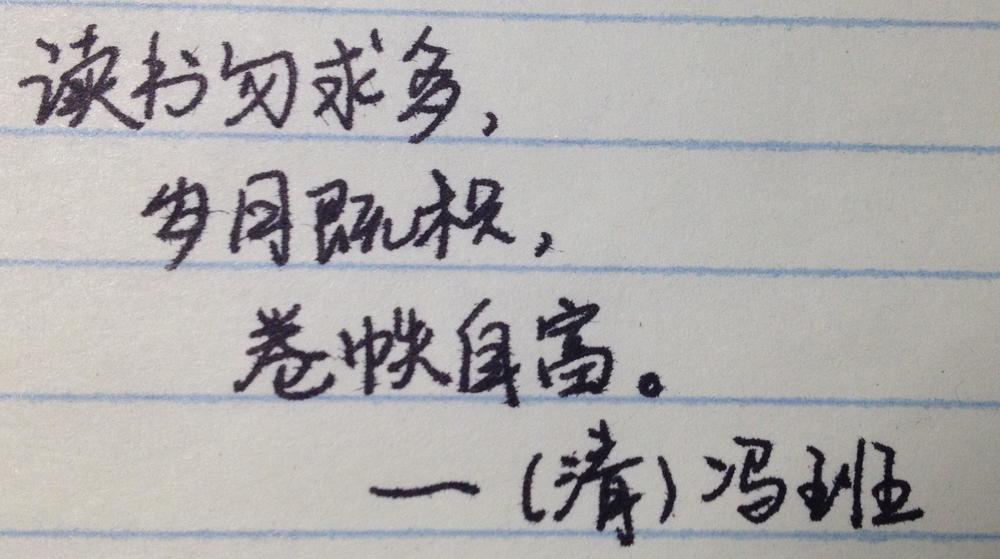 读书勿求多，
岁月既积，
卷帙自富。
—（清）冯班